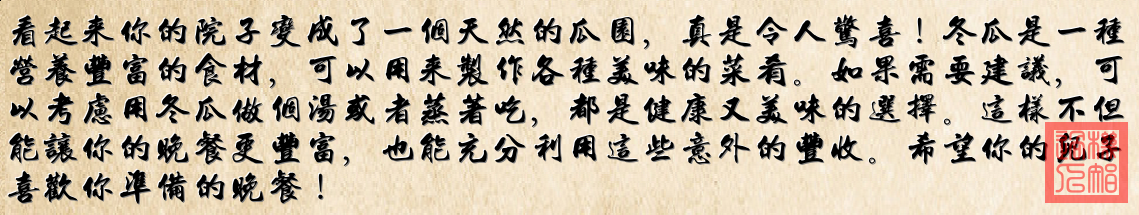 看起来你的院子變成了一個天然的瓜園，真是令人驚喜！冬瓜是一種
營養豐富的食材，可以用来製作各種美味的菜肴。如果需要建議，可
以考慮用冬瓜做個湯或者蒸著吃，都是健康又美味的選擇。這樣不但
能讓你的晚餐更豐富，也能充分利用這些意外的豐收。希望你的兒子
喜歡你準備的晚餐！